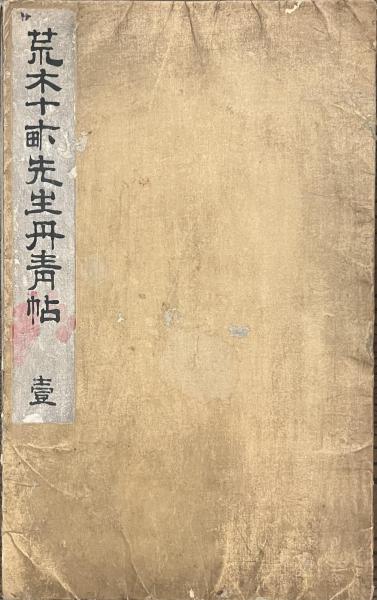 荒木十畝先生丹青帖
壹